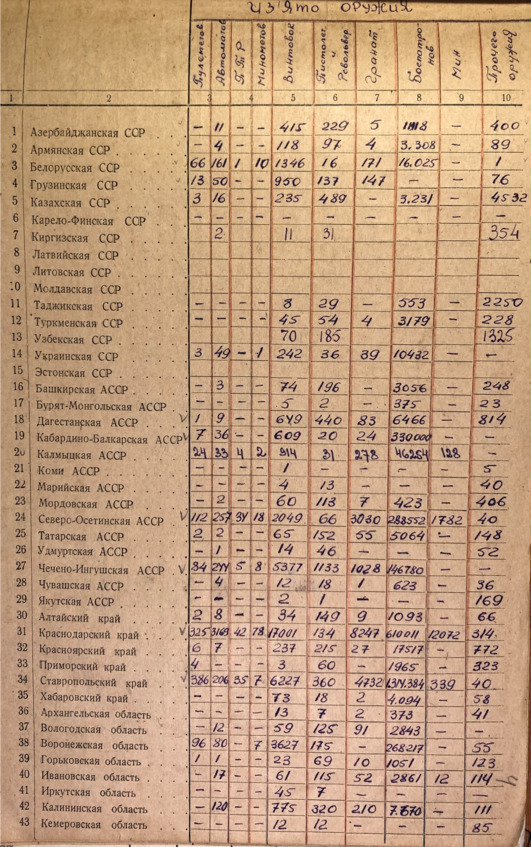 Изъято оружия
Пулеметов Автоматов П Т Р Минометов Винтовок Пистолет. и Револьвер. Гранат Боепатронов Мин Прочего оружия
1 2 3 4 5 6 7 8 9 10
1 Азербайджанская ССР – 11 – – 415 229 5 1818 – 400
2 Армянская ССР – 4 – – 118 97 4 3.308 – 89
3 Белорусская ССР 66 161 1 10 1346 16 171 16.025 – 1
4 Грузинская ССР 13 50 – – 950 137 147 – – 76
5 Казахская ССР 3 16 – – 235 489 – 3.231 – 4532
6 Карело-Финская ССР – – – – – – – – – –
7 Киргизская ССР 2 11 31 354
8 Латвийская ССР
9 Литовская ССР
10 Молдавская ССР
11 Таджикская ССР – – – – 8 29 – 553 – 2250
12 Туркменская ССР – – – – 45 54 4 3179 – 228
13 Узбекская ССР 70 185 1325
14 Украинская ССР 3 49 – 1 242 36 39 10432 – –
15 Эстонская ССР
16 Башкирская АССР – 3 – – 74 196 – 3056 – 248
17 Бурят-Монгольская АССР – – – – 5 2 – 375 – 23
18 Дагестанская АССР √ 1 9 – – 649 440 83 6466 – 814
19 Кабардино-Балкарская АССР √ 7 36 – – 609 20 24 330000 – –
20 Калмыцкая АССР 24 33 4 2 914 31 278 46254 128 –
21 Коми АССР – – – – 1 – – – – 5
22 Марийская АССР – – – – 4 13 – – – 40
23 Мордовская АССР – 2 – – 60 113 7 423 – 406
24 Северо-Осетинская АССР √ 112 257 34 18 2049 66 3030 288552 1782 40
25 Татарская АССР 2 2 – – 65 152 55 5064 – 148
26 Удмуртская АССР – 1 – – 14 46 – – – 52
27 Чечено-Ингушская АССР √ 84 244 5 8 5377 1133 1028 146780 – –
28 Чувашская АССР – 4 – – 12 18 1 623 – 36
29 Якутская АССР – – – – 2 1 – – – 169
30 Алтайский край 2 8 – – 34 149 9 1093 – 66
31 Краснодарский край √ 325 3169 42 78 17001 134 8247 610011 12072 314
32 Красноярский край 6 7 – – 237 215 27 17517 – 772
33 Приморский край 4 – – – 3 60 – 1965 – 323
34 Ставропольский край √ 386 206 35 7 6227 360 4732 1374384 339 40
35 Хабаровский край – – – – 73 18 2 4.094 – 58
36 Архангельская область – – – – 13 7 2 373 – 41
37 Вологодская область – 12 – – 59 125 91 2843 – –
38 Воронежская область 96 80 – 7 3627 175 – 268217 – 55
39 Горьковская область 1 1 – – 23 69 10 1051 – 123
40 Ивановская область – 17 – – 61 115 52 2861 12 114
41 Иркутская область – – – – 45 7 – – – –
42 Калининская область – 120 – – 775 320 210 7.670 – 111
43 Кемеровская область – – – – 12 12 – – – 85